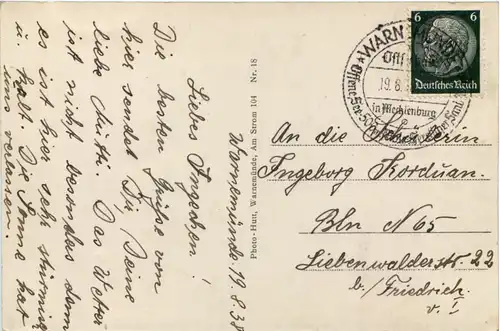 Warnemünde 19.8.38
Liebes Ingechen!
Die besten Grüße von
hier sendet Dir, Deine
liebe Mutti. Das Wetter
ist nicht besonders denn
es ist hier sehr stürmisch
u. kalt. Die Sonne hat
uns verlassen.
Photo-Hutt, Warnemünde, Am Strom 104 Nr. 18
WARNEMÜNDE
Ostseebad
19.8.
in Mecklenburg
6 6
Deutsches Reich
An die Schülerin
Ingeborg Korduan.
Bln N 65
Liebenwalderstr. 22
b./Friedrich.
v. I